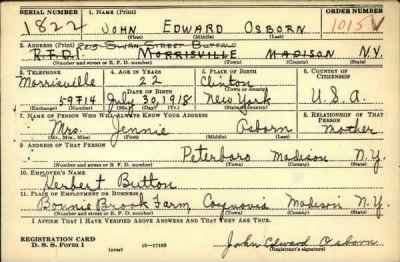 SERIAL NUMBER 1. NAME (Print) ORDER NUMBER
1822 JOHN EDWARD OSBORN 1015
(First) (Middle) (Last)
2. ADDRESS (Print) 205 SWAN STREET BUFFALO
R.F.D.1 MORRISVILLE MADISON N.Y.
(Number and street or R. F. D. number) (Town) (County) (State)
3. TELEPHONE 4. AGE IN YEARS 5. PLACE OF BIRTH 6. COUNTRY OF CITIZENSHIP
Morrisville 22 Clinton
DATE OF BIRTH (Town or county)
59F14 July 30, 1918 New York U.S.A.
(Exchange) (Number) (Mo.) (Day) (Yr.) (State or country)
7. NAME OF PERSON WHO WILL ALWAYS KNOW YOUR ADDRESS 8. RELATIONSHIP OF THAT PERSON
Mrs. Jennie Osborn Mother
(Mr., Mrs., Miss) (First) (Middle) (Last)
9. ADDRESS OF THAT PERSON
Peterboro Madison N.Y.
(Number and street or R. F. D. number) (Town) (County) (State)
10. EMPLOYER'S NAME
Herbert Button
11. PLACE OF EMPLOYMENT OR BUSINESS
Bonnie Brook Farm, Madison N.Y.
(Number and street or R. F. D. number) (Town) (County) (State)
I AFFIRM THAT I HAVE VERIFIED ABOVE ANSWERS AND THAT THEY ARE TRUE.
REGISTRATION CARD
D. S. S. Form 1 (over) 16—17105 John Edward Osborn
(Registrant's signature)